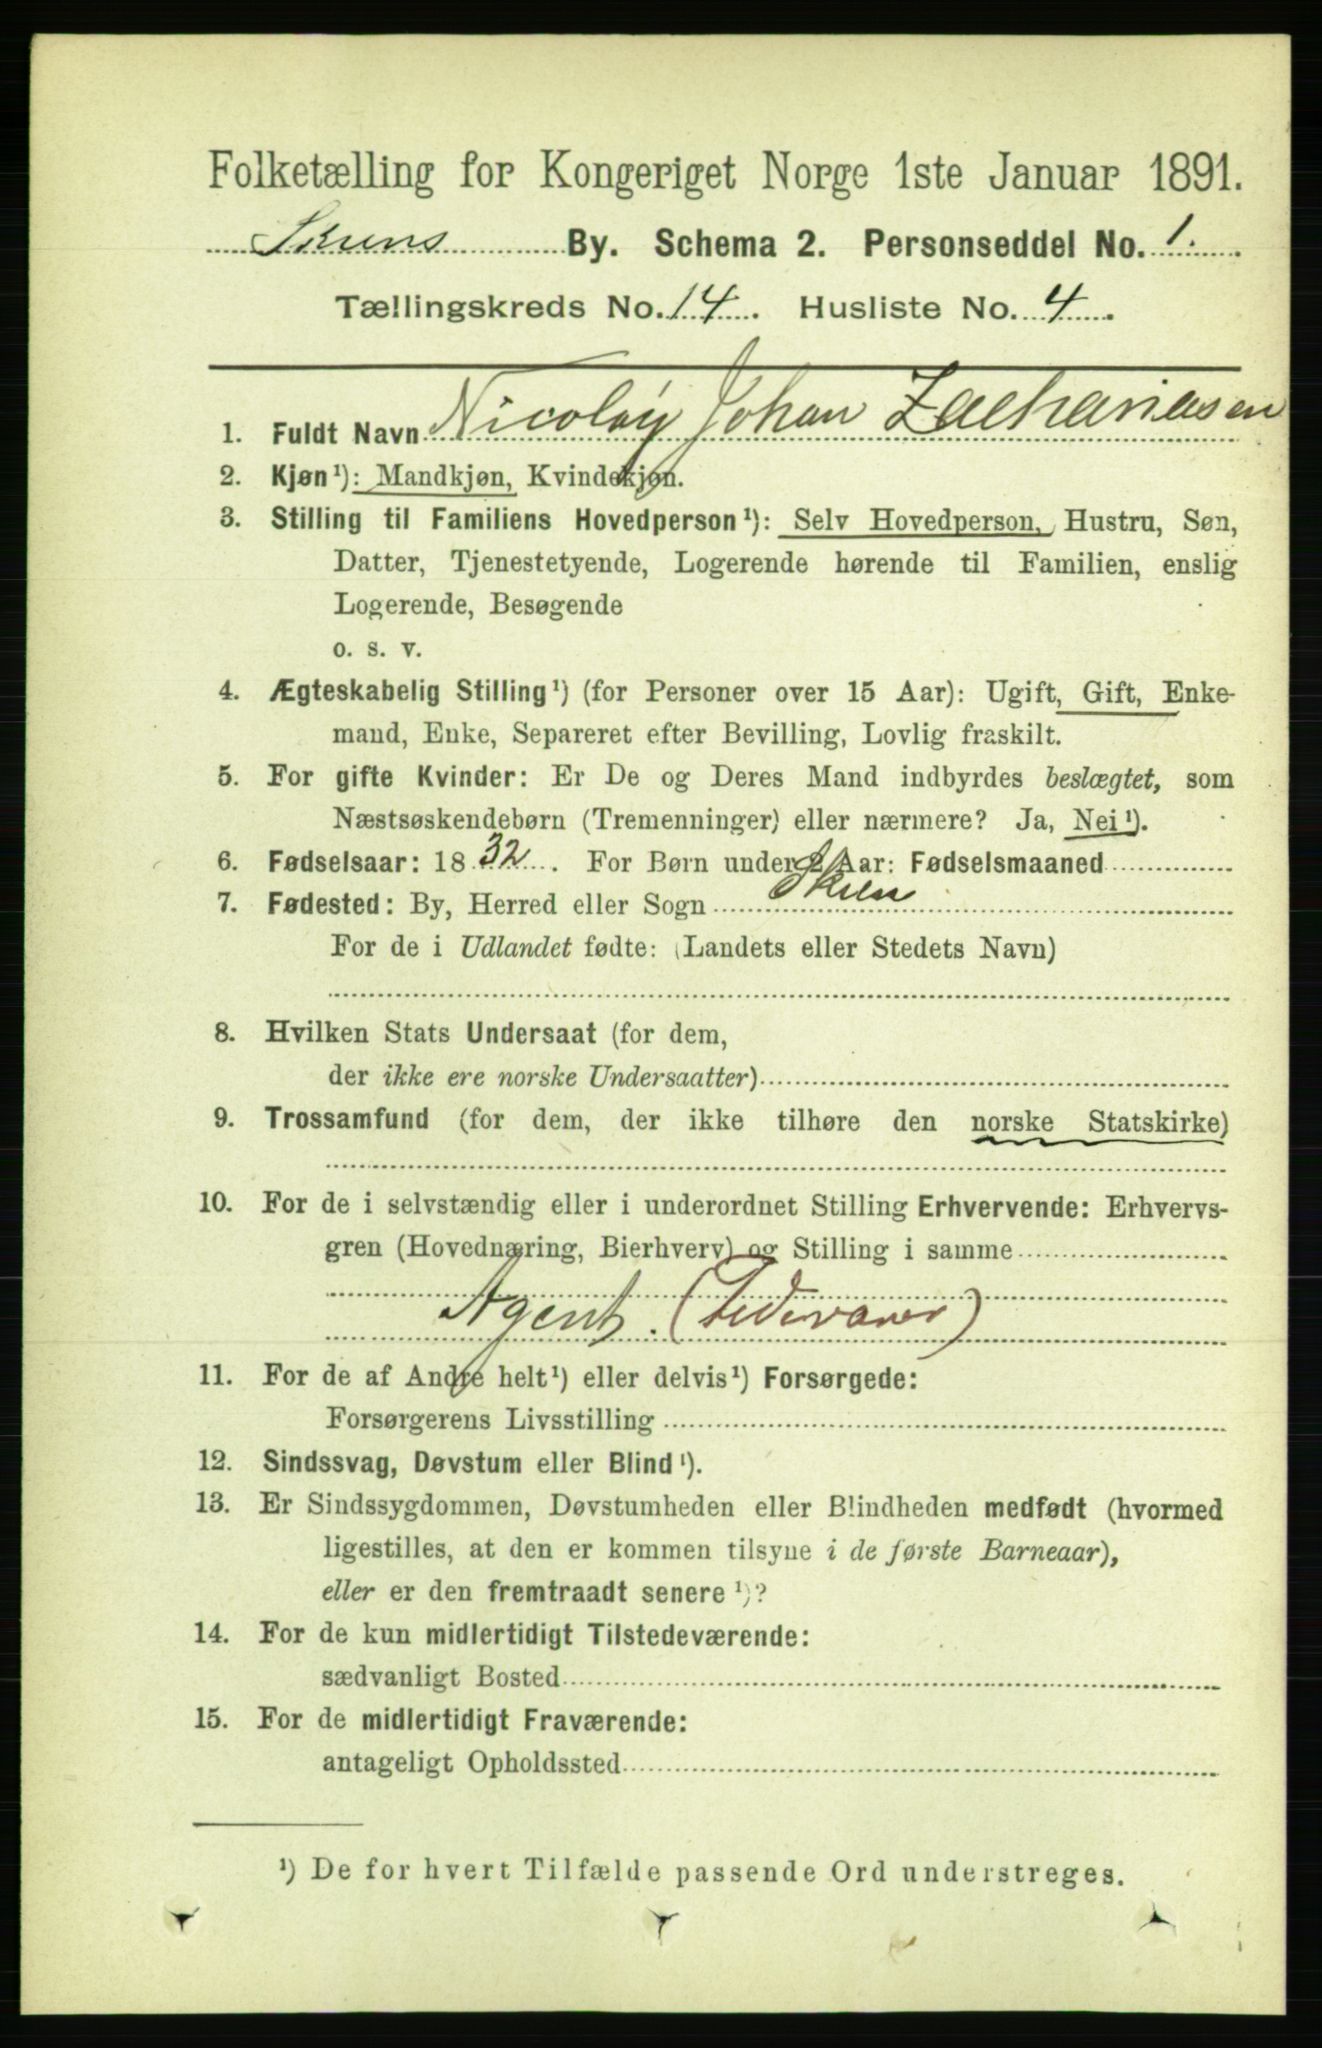 Folketælling for Kongeriget Norge 1ste Januar 1891.
Skiens By. Schema 2. Personseddel No. 1.
Tællingskreds No. 14. Husliste No. 4.
1. Fuldt Navn Nicolay Johan Zachariasen
2. Kjøn¹): Mandkjøn, Kvindekjøn.
3. Stilling til Familiens Hovedperson¹): Selv Hovedperson, Hustru, Søn,
Datter, Tjenestetyende, Logerende hørende til Familien, enslig
Logerende, Besøgende
o. s. v.
4. Ægteskabelig Stilling¹) (for Personer over 15 Aar): Ugift, Gift, Enke-
mand, Enke, Separeret efter Bevilling, Lovlig fraskilt.
5. For gifte Kvinder: Er De og Deres Mand indbyrdes beslægtet, som
Næstsøskendebørn (Tremenninger) eller nærmere? Ja, Nei¹).
6. Fødselsaar: 1832. For Børn under 2 Aar: Fødselsmaaned
7. Fødested: By, Herred eller Sogn Skien
For de i Udlandet fødte: (Landets eller Stedets Navn)
8. Hvilken Stats Undersaat (for dem,
der ikke ere norske Undersaatter)
9. Trossamfund (for dem, der ikke tilhøre den norske Statskirke)
10. For de i selvstændig eller i underordnet Stilling Erhvervende: Erhvervs-
gren (Hovednæring, Bierhverv) og Stilling i samme
Agent. (Fedevarer)
11. For de af Andre helt¹) eller delvis¹) Forsørgede:
Forsørgerens Livsstilling
12. Sindssvag, Døvstum eller Blind¹).
13. Er Sindssygdommen, Døvstumheden eller Blindheden medfødt (hvormed
ligestilles, at den er kommen tilsyne i de første Barneaar),
eller er den fremtraadt senere¹)?
14. For de kun midlertidigt Tilstedeværende:
sædvanligt Bosted
15. For de midlertidigt Fraværende:
antageligt Opholdssted
¹) De for hvert Tilfælde passende Ord understreges.